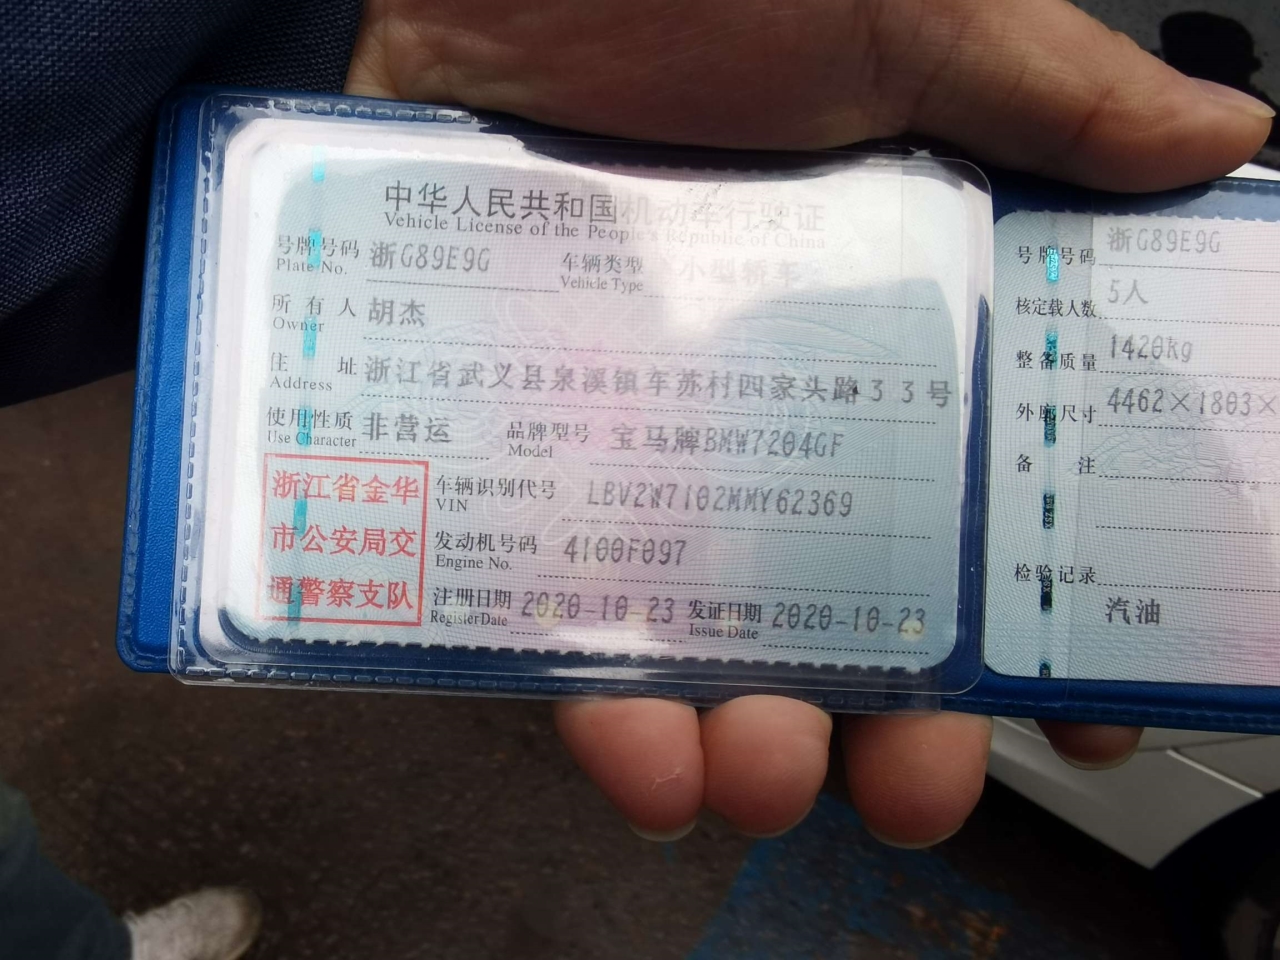 中华人民共和国机动车行驶证
Vehicle License of the People's Republic of China
号牌号码 浙G89E9G 车辆类型 小型轿车
Plate No. Vehicle Type
所有人 胡杰
Owner
住址 浙江省武义县泉溪镇车苏村四家头路33号
Address
使用性质 非营运 品牌型号 宝马牌BMW7204GF
Use Character Model
浙江省金华
市公安局交
通警察支队
车辆识别代号 LBV2W7102MMY62369
VIN
发动机号码 4100F097
Engine No.
注册日期 2020-10-23 发证日期 2020-10-23
Register Date Issue Date
号牌号码 浙G89E9G
核定载人数 5人
整备质量 1420kg
外廓尺寸 4462×1803×
备注
检验记录
汽油